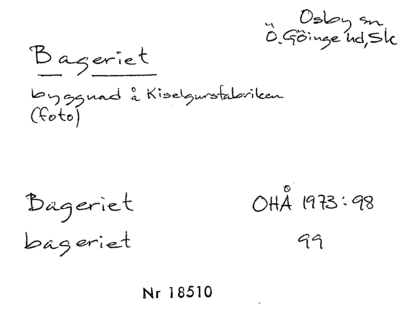 Osby sn
Ö. Göinge hd, Sk
Bageriet
byggnad å Kiselgursfabriken
(foto)
Bageriet OHÅ 1973:98
bageriet 99
Nr 18510